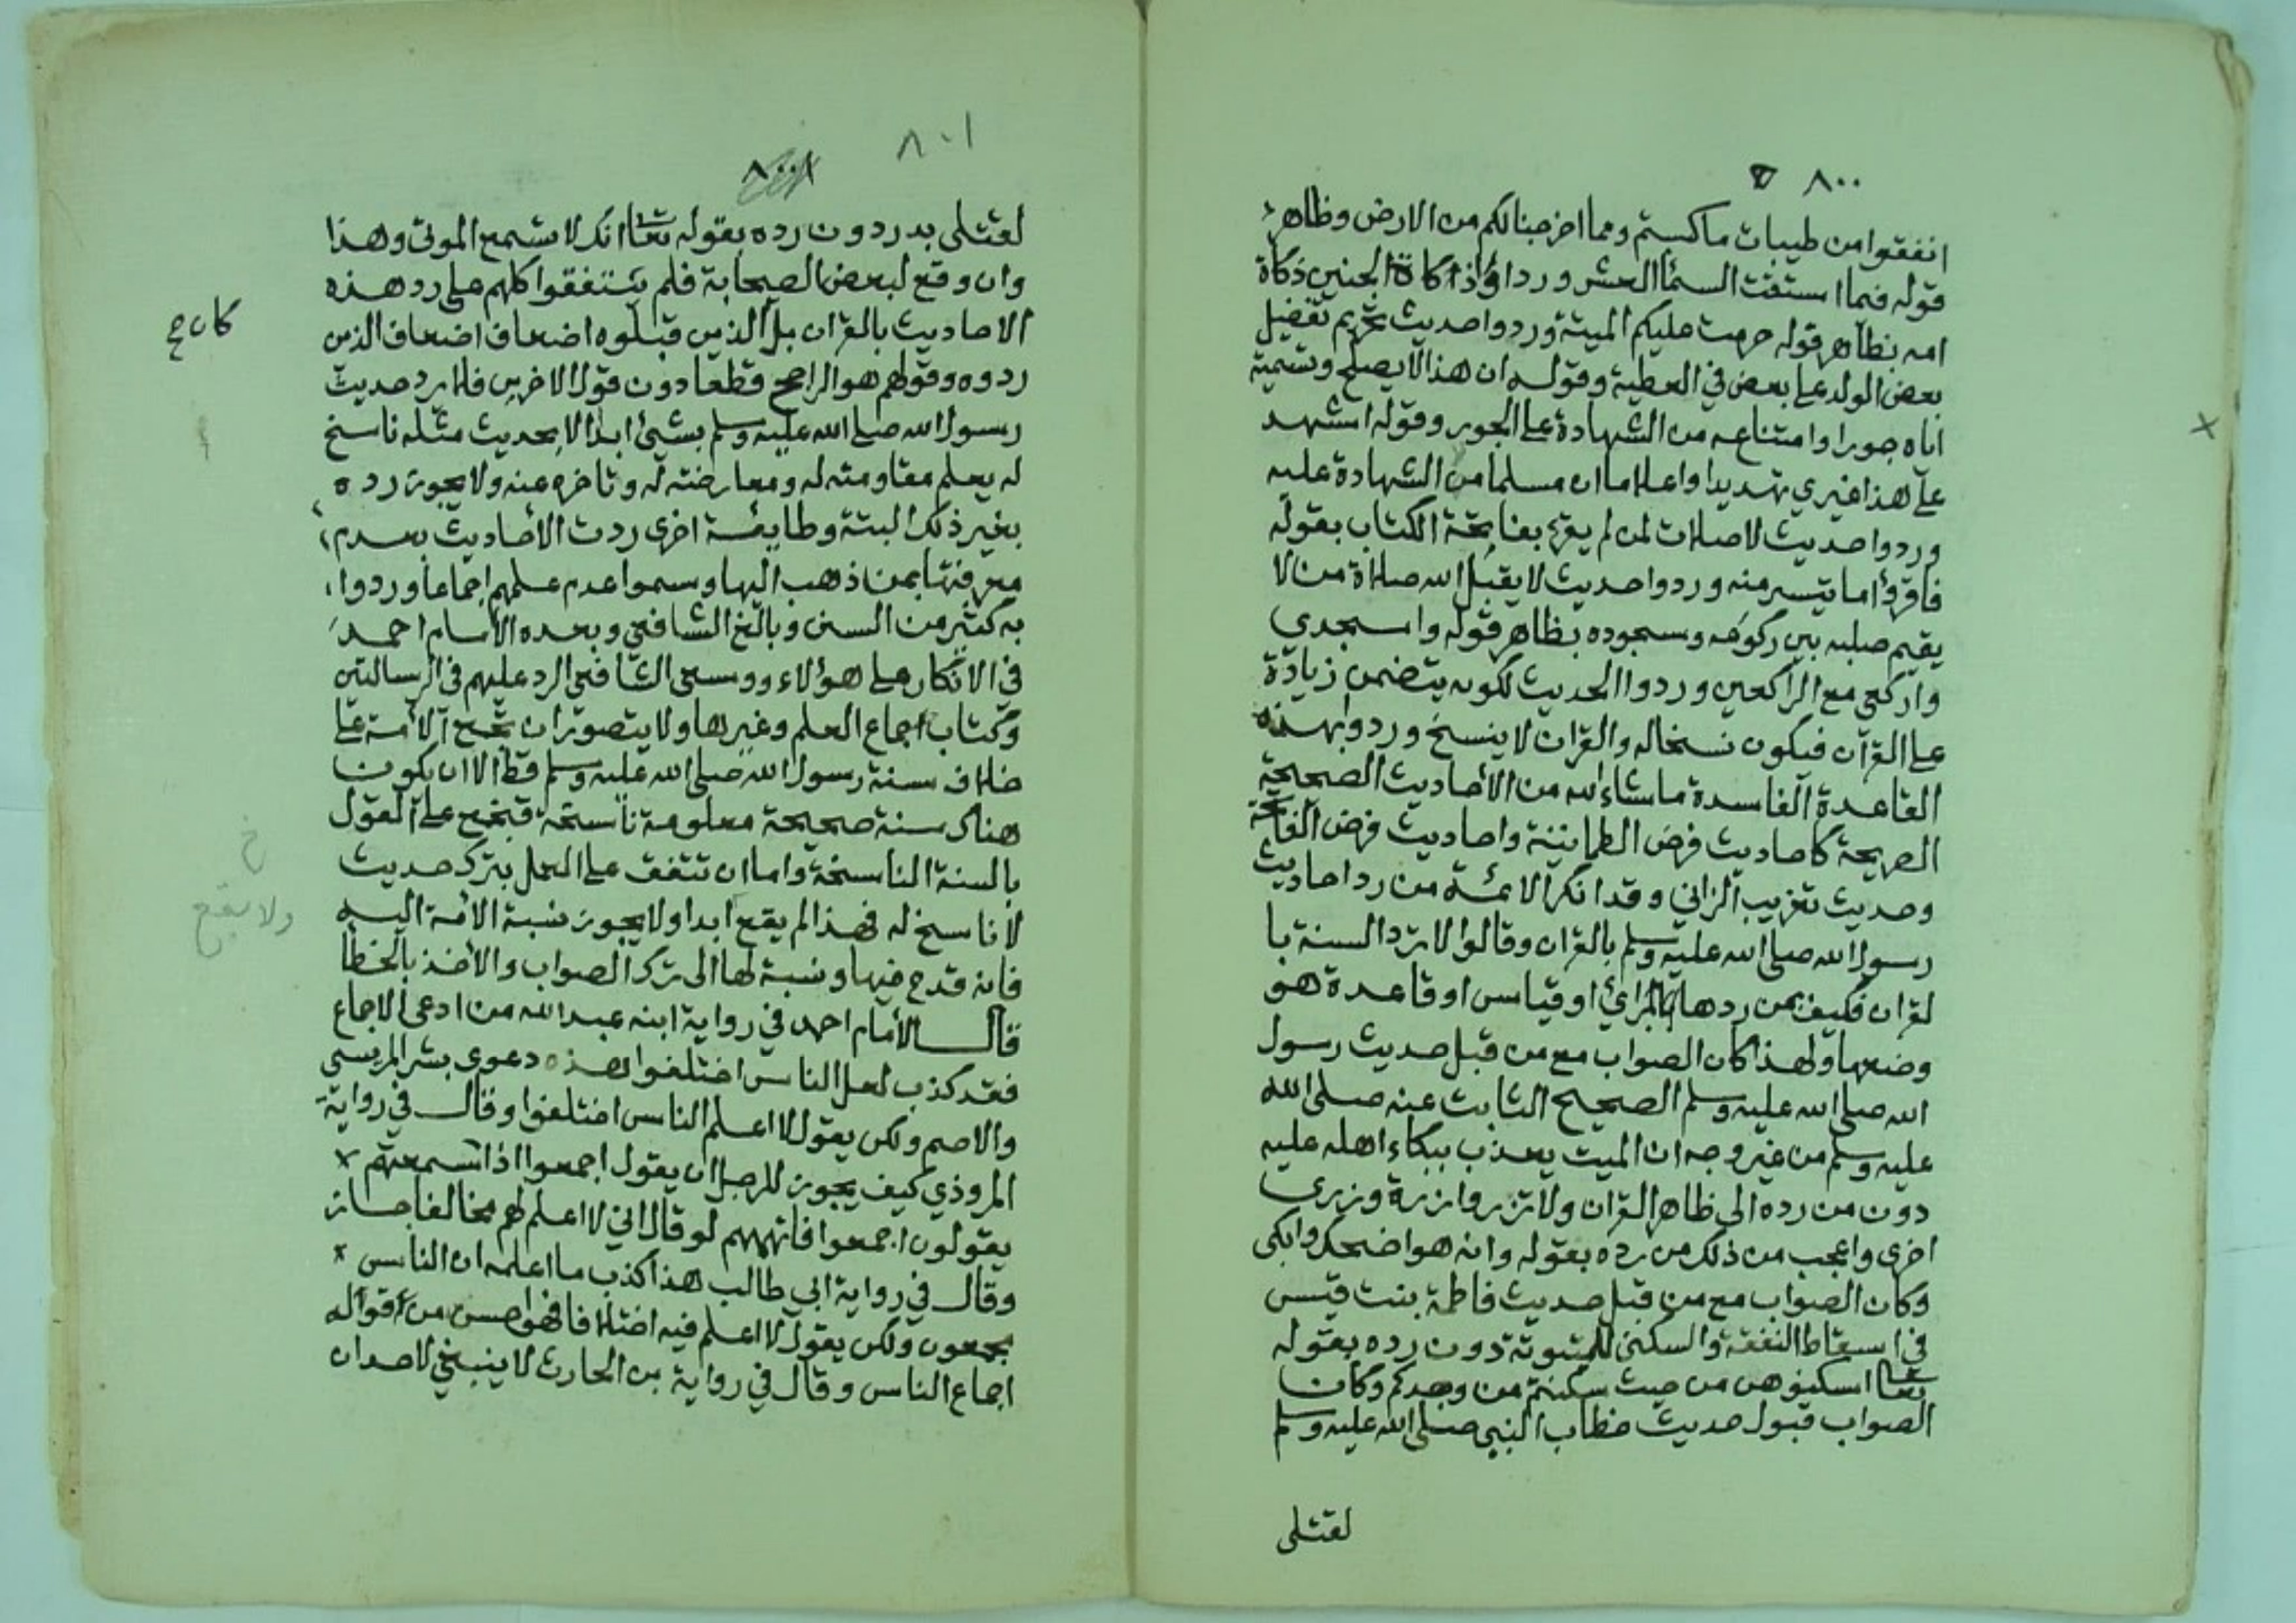 ٨٠٠
انفقوا من طيبات ما كسبتم ومما اخرجنا لكم من الارض وظاهر
قوله فيما استقت السما العشر وردوا ذكاة الجنين ذكاة
امه بظاهر قوله حرمت عليكم الميتة وردوا حديث تحريم تفضيل
بعض الولد على بعض في العطية وقوله ان هذا لا يصلح وتسمية
اياه جورا وامتناعه من الشهادة على الجور وقوله اشهد
على هذا غيري تهديدا واعلاما ان مسلما من الشهادة عليه
وردوا حديث لا صلات لمن لم يقرء بفاتحة الكتاب بقوله
فاقرؤا ما تيسر منه وردوا حديث لا يقبل الله صلاة من لا
يقيم صلبه بين ركوعه وسجوده بظاهر قوله واسجدي
واركعي مع الراكعين وردوا الحديث لكونه يتضمن زيادة
على القرآن فيكون نسخا له والقران لا ينسخ وردوا بهذه
القاعدة الفاسدة ما شاء الله من الأحاديث الصحيحة
الصريحة كاحاديث فرض الطمانينة واحاديث فرض الفاتحة
وحديث تغريب الزاني وقد انكر الائمة من رد احاديث
رسول الله صلى الله عليه وسلم بالقران وقالوا لا ترد السنة با
لقران فكيف بمن ردها بالرائ او قياس او قاعدة هو
وضعها ولهذا كان الصواب مع من قبل حديث رسول
الله صلى الله عليه وسلم الصحيح الثابت عنه صلى الله
عليه وسلم من غير وجه ان الميت يعذب ببكاء اهله عليه
دون من رده الى ظاهر القران ولا تزر وازرة وزرى
اخرى واعجب من ذلك من رده بقوله وانه هو اضحك وابكى
وكان الصواب مع من قبل حديث فاطمة بنت قيس
في اسقاط النفقة والسكنى للمبتوتة دون رده بقوله
تعالى اسكنوهن من حيث سكنتم من وجدكم وكان
الصواب قبول حديث خطاب النبي صلى الله عليه وسلم
لقتلى
٨٠١
لقتلى بدر دون رده بقوله تعا انك لا تسمع الموتى وهذا
وان وقع لبعض الصحابة فلم يتفقوا كلهم على رد هذه
الاحاديث بالقران بل الذين قبلوه اضعاف اضعاف الذين
ردوه وقولهم هو الراجح قطعا دون قول الاخرين فلا يرد حديث
رسول الله صلى الله عليه وسلم بشيئ ابدا الا بحديث مثله ناسخ
له يعلم مقاومته له ومعارضته له وتاخره عنه ولا يجوز رده
بغير ذلك البتة وطايفة اخرى ردت الأحاديث بعدم
معرفتها بمن ذهب اليها وسموا عدم علمهم اجماعا وردوا
به كثير من السنن وبالغ الشافعي وبعده الأمام احمد
في الانكار على هؤلاء ووسعى الشافعي الرد عليهم في الرسالتين
وكتاب اجماع العلم وغيرها ولا يتصور ان تجمع الأمة على
خلاف سنة رسول الله صلى الله عليه وسلم قط الا ان يكون
هناك سنة صحيحة معلومة ناسخة فتجمع على القول
بالسنة الناسخة واما ان تتفق على العمل بترك حديث
لا ناسخ له فهذا لم يقع ابدا ولا يجوز نسبة الامة اليه
فانه قدح فيها ونسبة لها الى ترك الصواب والأخذ بالخطأ
قال الأمام احمد في رواية ابنه عبد الله من ادعى الاجماع
فقد كذب لعل الناس اختلفوا هذه دعوى بشر المريسي
والاصم ولكن يقول لا اعلم الناس اختلفوا وقال في رواية
المروذي كيف يجوز للرجل ان يقول اجمعوا اذا سمعتهم
يقولون اجمعوا فاتهمهم لو قال اني لا اعلم لهم مخالفا جاز
وقال في رواية ابي طالب هذا كذب ما اعلمه ان الناس
مجمعون ولكن يقول لا اعلم فيه اختلافا فهو احسن من قوله
اجماع الناس وقال في رواية بن الحارث لا ينبغي لاحد ان
كان
خ
ولا يقع